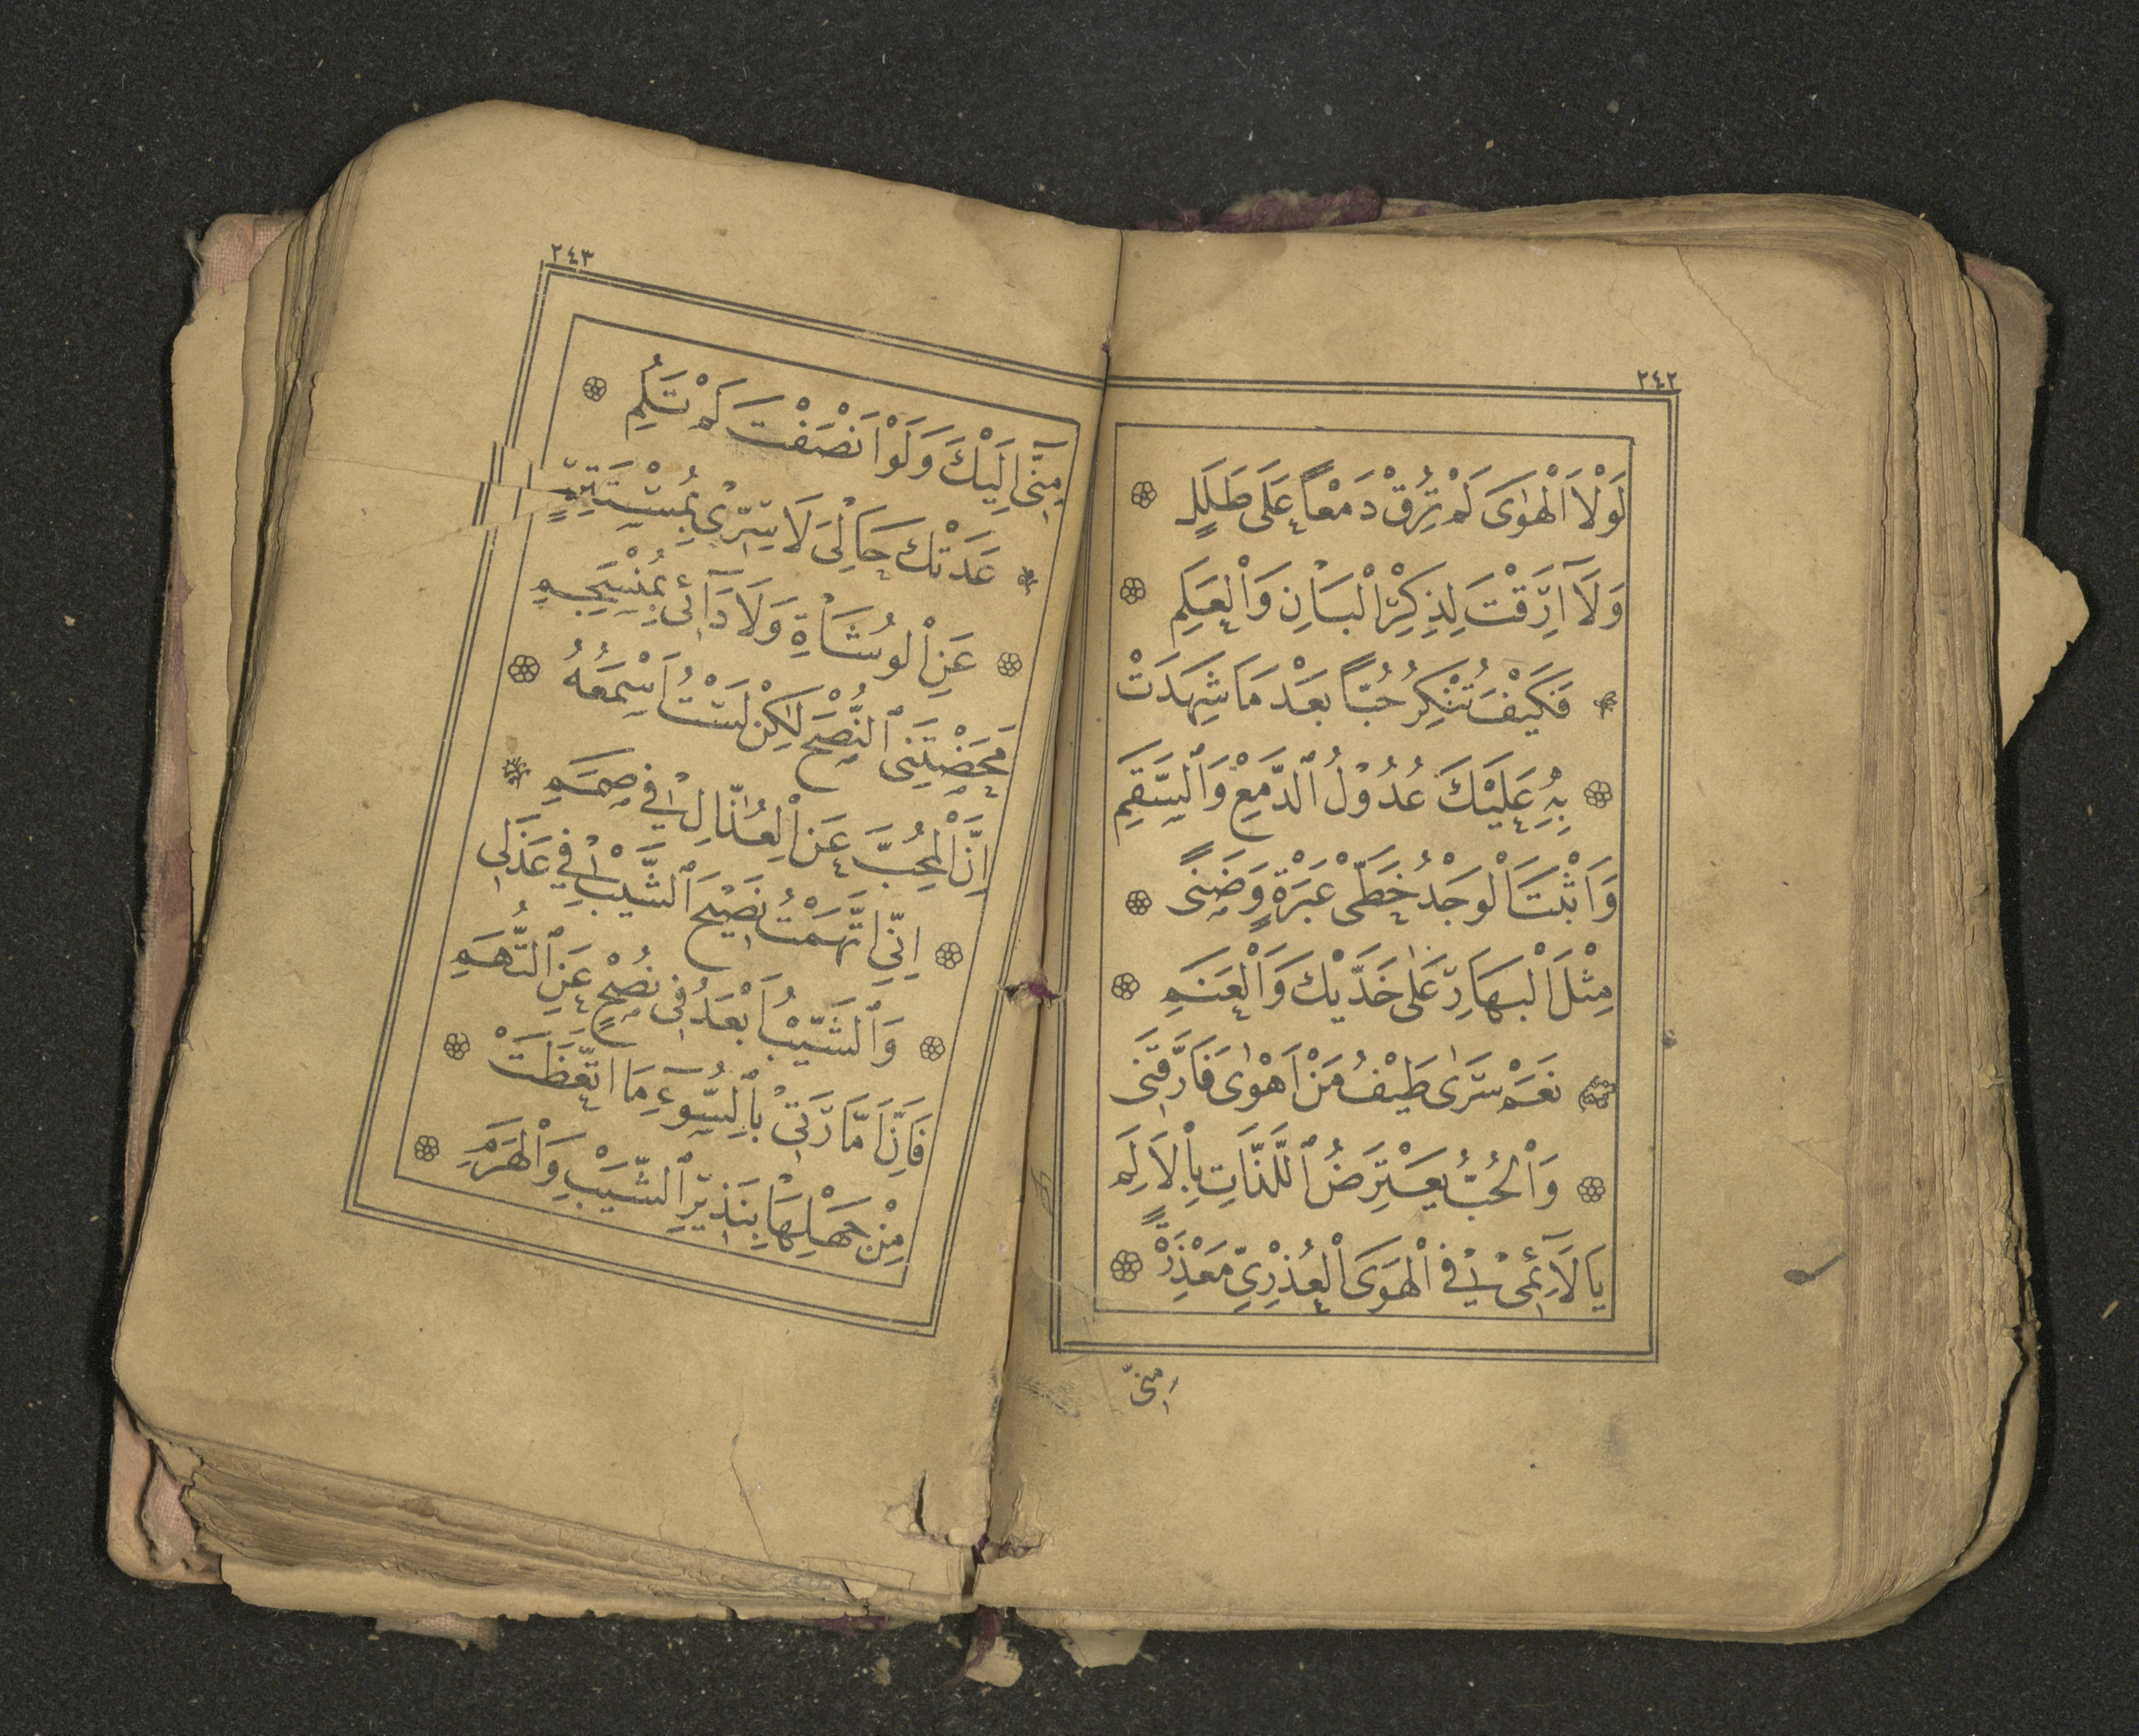 ٢٤٢
لَوْلَا اَلْهَوٰى لَمْ تُرِقْ دَمْعاً عَلَى طَلَلٍ
وَلَآ اَرِقْتَ لِذِكْرِ الْبَانِ وَالْعَلَمِ
فَكَيْفَ تُنْكِرُ حُبّاً بَعْدَ مَا شَهِدَتْ
بِهِ عَلَيْكَ عُدُوْلُ الدَّمْعِ وَالسَّقَمِ
وَاَثْبَتَ الْوَجْدُ خَطَّىْ عَبْرَةٍ وَضَنًى
مِثْلَ الْبَهَارِ عَلٰى خَدَّيْكَ وَالْعَنَمِ
نَعَمْ سَرٰى طَيْفُ مَنْ اَهْوٰى فَاَرَّقَنِى
وَالْحُبُّ يَعْتَرِضُ اللَّذَّاتِ بِالْاَلَمِ
يَا لَآئِمِىْ فِى الْهَوَى الْعُذْرِىِّ مَعْذِرَةً
مِنّى
٢٤٣
مِنِّىٓ اِلَيْكَ وَلَوْ اَنْصَفْتَ لَمْ تَلُمِ
عَدَتْكَ حَالِىَ لَا سِرِّىْ بِمُسْتَتِرٍ
عَنِ الْوُشَاةِ وَلَا دَآئِى بِمُنْحَسِمِ
مَحَضْتَنِى النُّصْحَ لٰكِنْ لَسْتُ اَسْمَعُهُ
اِنَّ الْمُحِبَّ عَنِ الْعُذَّالِ فِىْ صَمَمِ
اِنِّى اتَّهَمْتُ نَصِيْحَ الشَّيْبِ فِىْ عَذَلِى
وَالشَّيْبُ اَبْعَدُ فِى نُصْحٍ عَنِ التُّهَمِ
فَاِنَّ اَمَّارَتِىْ بِالسُّوٓءِ مَا اتَّعَظَتْ
مِنْ جَهْلِهَا بِنَذِيْرِ الشَّيْبِ وَالْهَرَمِ